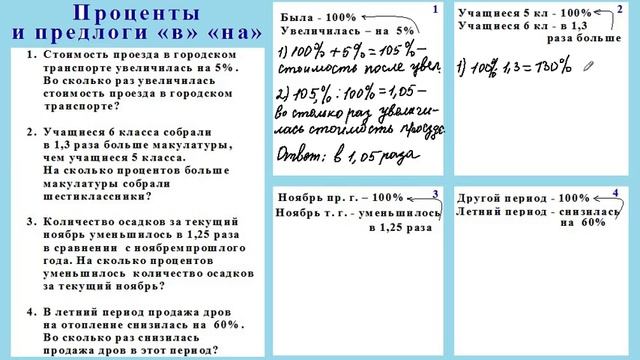 Проценты
и предлоги «в» «на»
1. Стоимость проезда в городском
транспорте увеличилась на 5%.
Во сколько раз увеличилась
стоимость проезда в городском
транспорте?
2. Учащиеся 6 класса собрали
в 1,3 раза больше макулатуры,
чем учащиеся 5 класса.
На сколько процентов больше
макулатуры собрали
шестиклассники?
3. Количество осадков за текущий
ноябрь уменьшилось в 1,25 раза
в сравнении с ноябремпрошлого
года. На сколько процентов
уменьшилось количество осадков
за текущий ноябрь?
4. В летний период продажа дров
на отопление снизилась на 60%.
Во сколько раз снизилась
продажа дров в этот период?
1
Была - 100%
Увеличилась – на 5%
1) 100% + 5% = 105% –
стоимость после увел.
2) 105% : 100% = 1,05 –
во столько раз увеличи-
лась стоимость проезда.
Ответ: в 1,05 раза
2
Учащиеся 5 кл - 100%
Учащиеся 6 кл - в 1,3
раза больше
1) 100% · 1,3 = 130%
3
Ноябрь пр. г. – 100%
Ноябрь т. г. - уменьшилось
в 1,25 раза
4
Другой период - 100%
Летний период - снизилась
на 60%